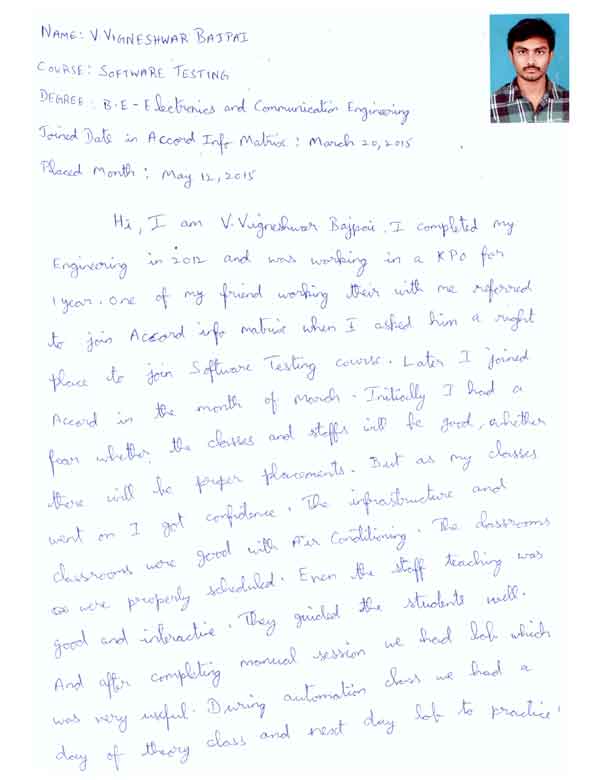 NAME: V. VIGNESHWAR BAJPAI
COURSE: SOFTWARE TESTING
DEGREE: B.E - Electronics and Communication Engineering
Joined Date in Accord Info Matrix: March 20, 2015
Placed Month: May 12, 2015
Hi, I am V. Vigneshwar Bajpai. I completed my
Engineering in 2012 and was working in a KPO for
1 year. One of my friend working their with me referred
to join Accord info matrix when I asked him a right
place to join Software Testing course. Later I joined
Accord in the month of March. Initially I had a
fear whether the classes and staffs will be good, whether
there will be proper placements. But as my classes
went on I got confidence. The infrastructure and
classrooms were good with Air Conditioning. The classrooms
were properly scheduled. Even the staff teaching was
good and interactive. They guided the students well.
And after completing manual session we had lab which
was very useful. During automation class we had a
day of theory class and next day lab to practice.